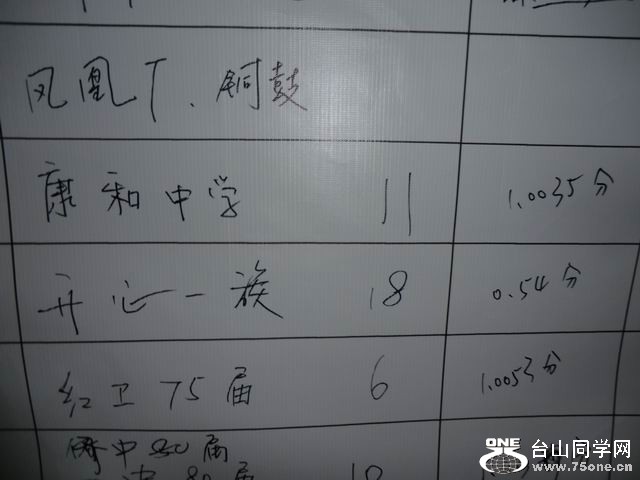 凤凰丁、铜鼓
康和中学 11 1.0035分
开心一族 18 0.54分
红卫75届 6 1.0053分
侨中80届
中80届
台山同学网
www.75one.cn
ONE